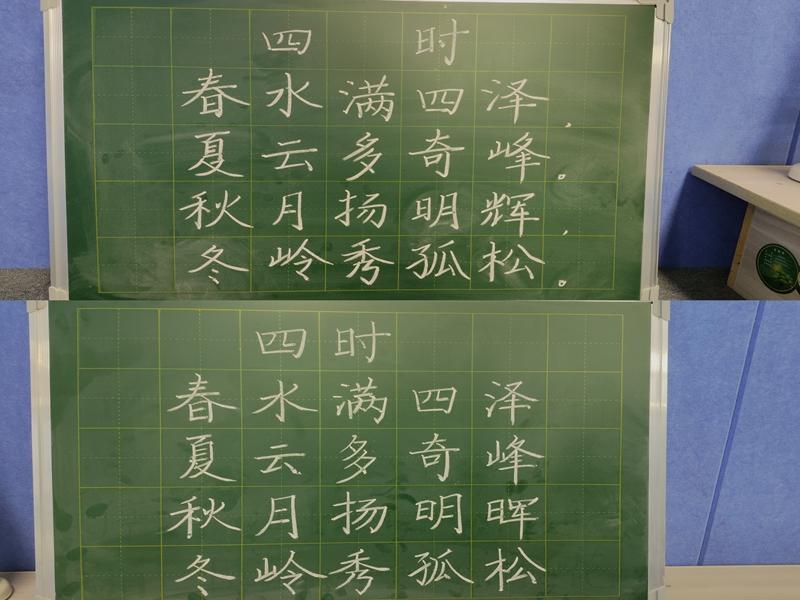 四时
春水满四泽，
夏云多奇峰。
秋月扬明辉，
冬岭秀孤松。
四时
春水满四泽
夏云多奇峰
秋月扬明晖
冬岭秀孤松